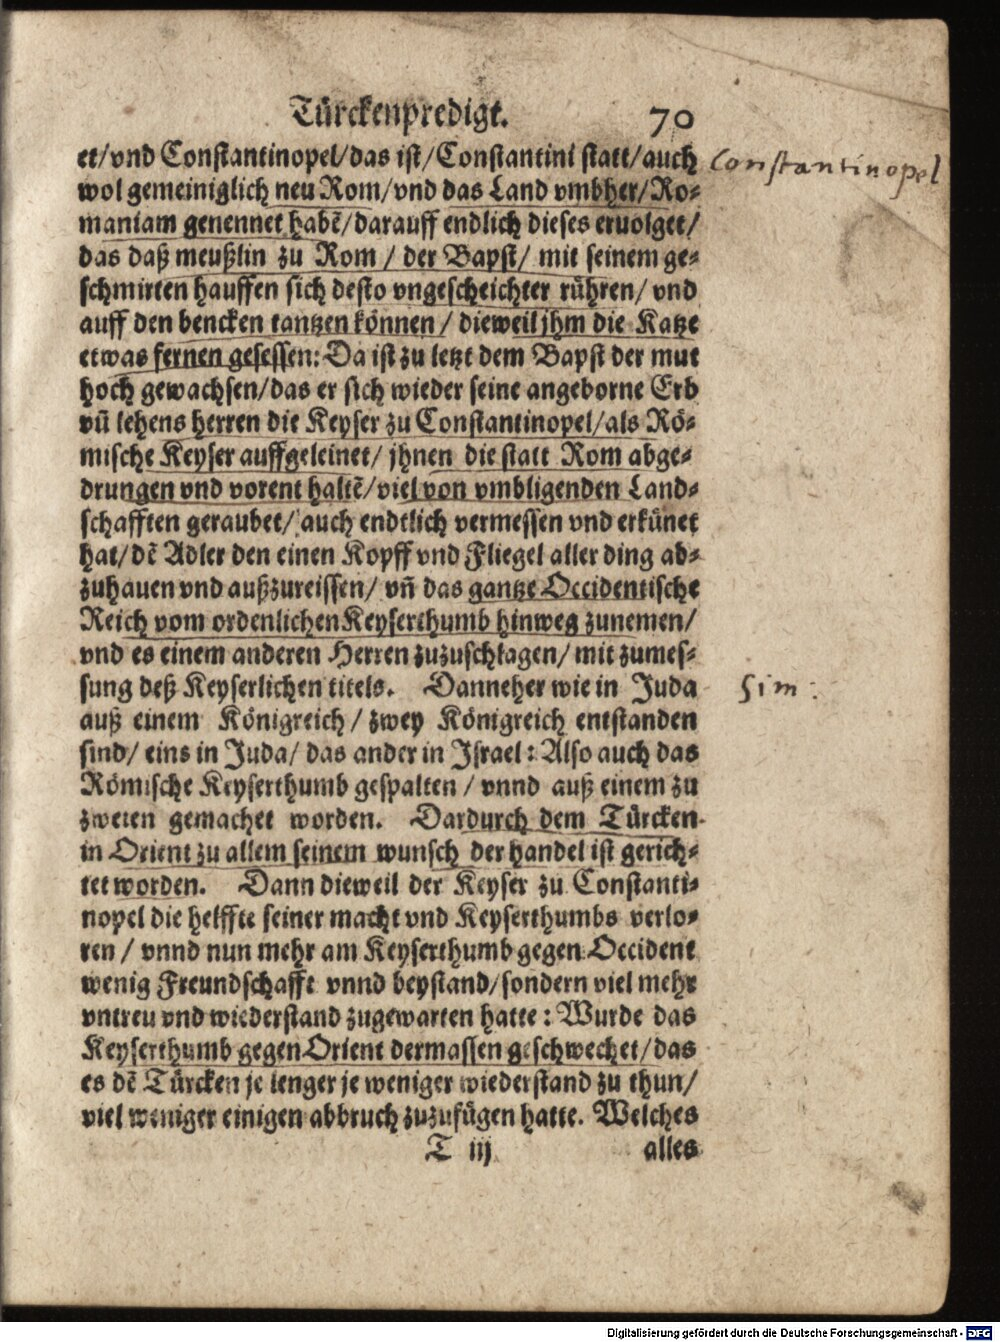 Türckenpredigt. 70
et/vnd Constantinopel/das ist/Constantini statt/auch
Constantinopel
wol gemeiniglich neu Rom/vnd das Land vmbher/Ro-
maniam genennet habẽ/darauff endlich dieses eruolget/
das daß meußlin zu Rom / der Bapst/ mit seinem ge-
schmirten hauffen sich desto vngescheichter rühren/ vnd
auff den bencken tantzen können / dieweil jhm die Katze
etwas fernen gesessen: Da ist zu letzt dem Bapst der mut
hoch gewachsen/das er sich wieder seine angeborne Erb
vñ lehens herren die Keyser zu Constantinopel/als Rö-
mische Keyser auffgeleinet/ jhnen die statt Rom abge-
drungen vnd vorent haltẽ/viel von vmbligenden Land-
schafften geraubet/ auch endtlich vermessen vnd erkünet
hat/dẽ Adler den einen Kopff vnd Fliegel aller ding ab-
zuhauen vnd außzureissen/ vñ das gantze Occidentische
Reich vom ordenlichen Keyserthumb hinweg zunemen/
vnd es einem anderen Herren zuzuschlagen/ mit zumes-
sung deß Keyserlichen titels. Danneher wie in Juda
sim:
auß einem Königreich / zwey Königreich entstanden
sind/ eins in Juda/ das ander in Jsrael: Also auch das
Römische Keyserthumb gespalten / vnnd auß einem zu
zweien gemachet worden. Dardurch dem Türcken
in Orient zu allem seinem wunsch der handel ist gerich-
tet worden. Dann dieweil der Keyser zu Constanti-
nopel die helffte seiner macht vnd Keyserthumbs verlo-
ren / vnnd nun mehr am Keyserthumb gegen Occident
wenig Freundschafft vnnd beystand/sondern viel mehr
vntreu vnd wiederstand zugewarten hatte: Wurde das
Keyserthumb gegen Orient dermassen geschwechet/das
es dẽ Türcken je lenger je weniger wiederstand zu thun/
viel weniger einigen abbruch zuzufügen hatte. Welches
T iij alles
Digitalisierung gefördert durch die Deutsche Forschungsgemeinschaft - DFG